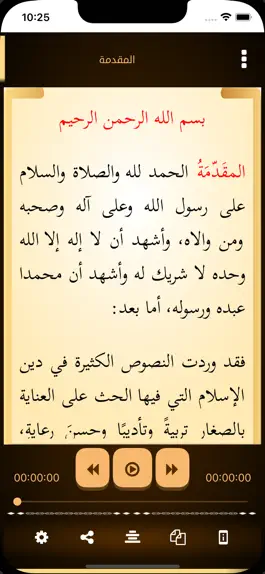 10:25
المقدمة
بسم الله الرحمن الرحيم
المقَدّمَةُ الحمد لله والصلاة والسلام
على رسول الله وعلى آله وصحبه
ومن والاه، وأشهد أن لا إله إلا الله
وحده لا شريك له وأشهد أن محمدا
عبده ورسوله، أما بعد:
فقد وردت النصوص الكثيرة في دين
الإسلام التي فيها الحث على العناية
بالصغار تربيةً وتأديبًا وحسنَ رعايةٍ،
00:00:00
00:00:00